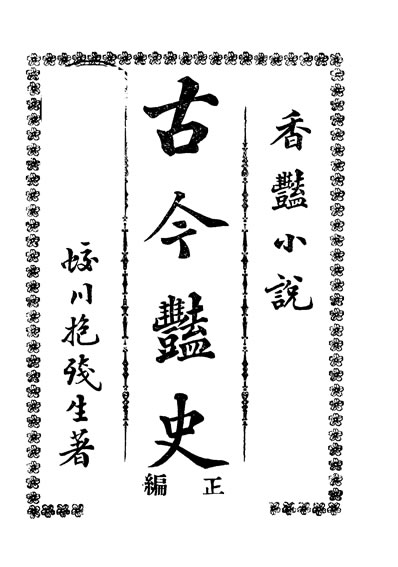 香豔小說
古今豔史
正編
蛟川抱殘生著